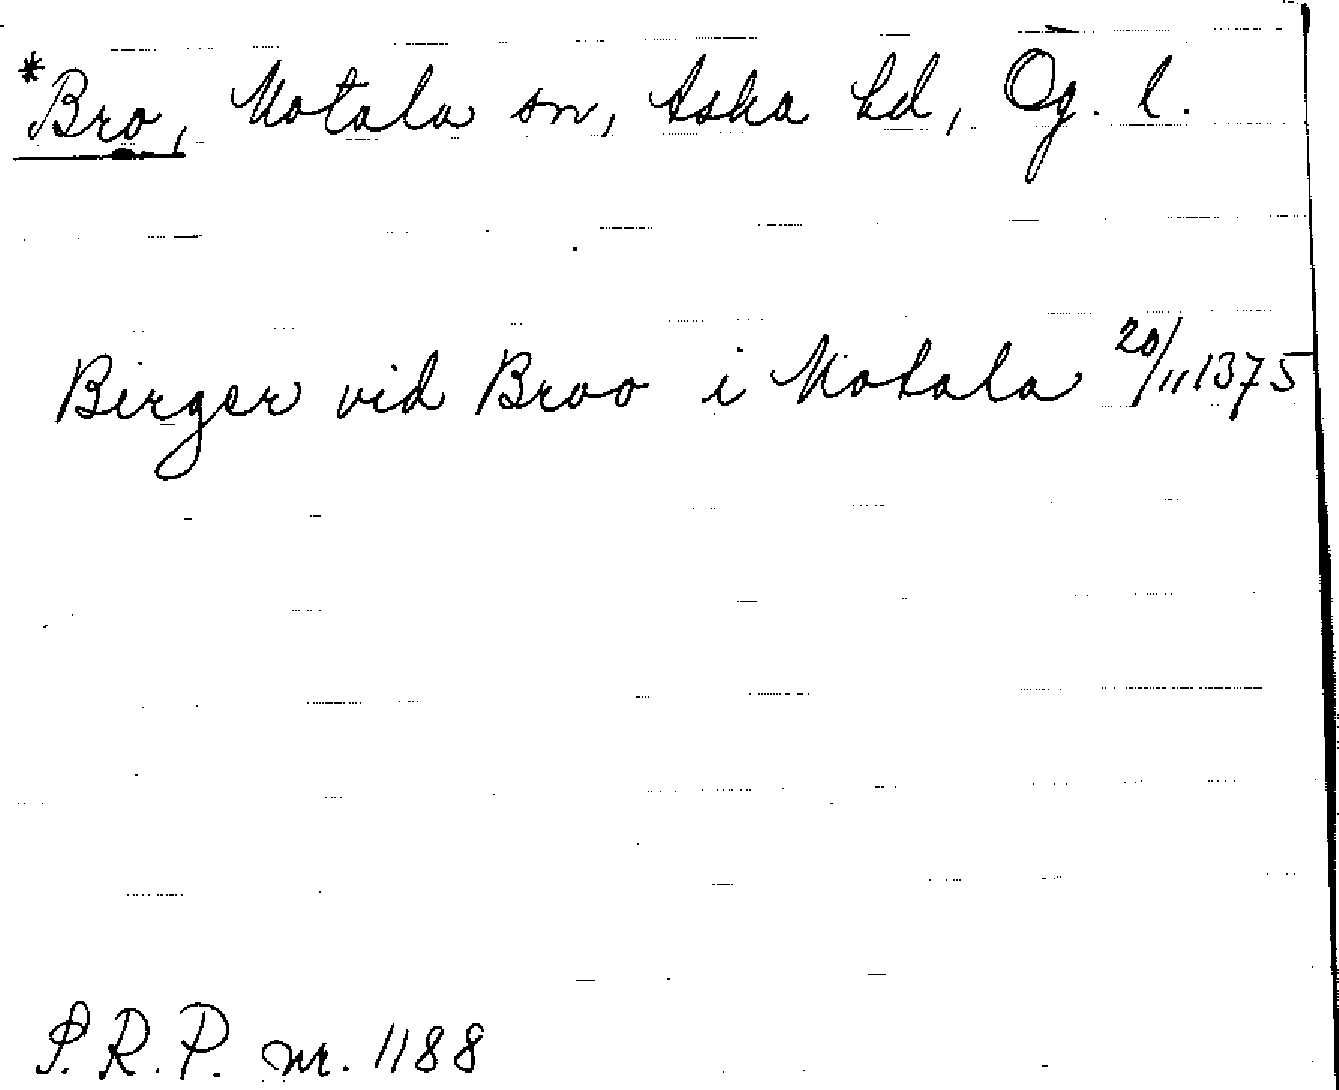 *Bro, Motala sn, Aska hd, Ög. l.
Birger vid Broo i Motala 20/11 1375
S.R.P. nr. 1188